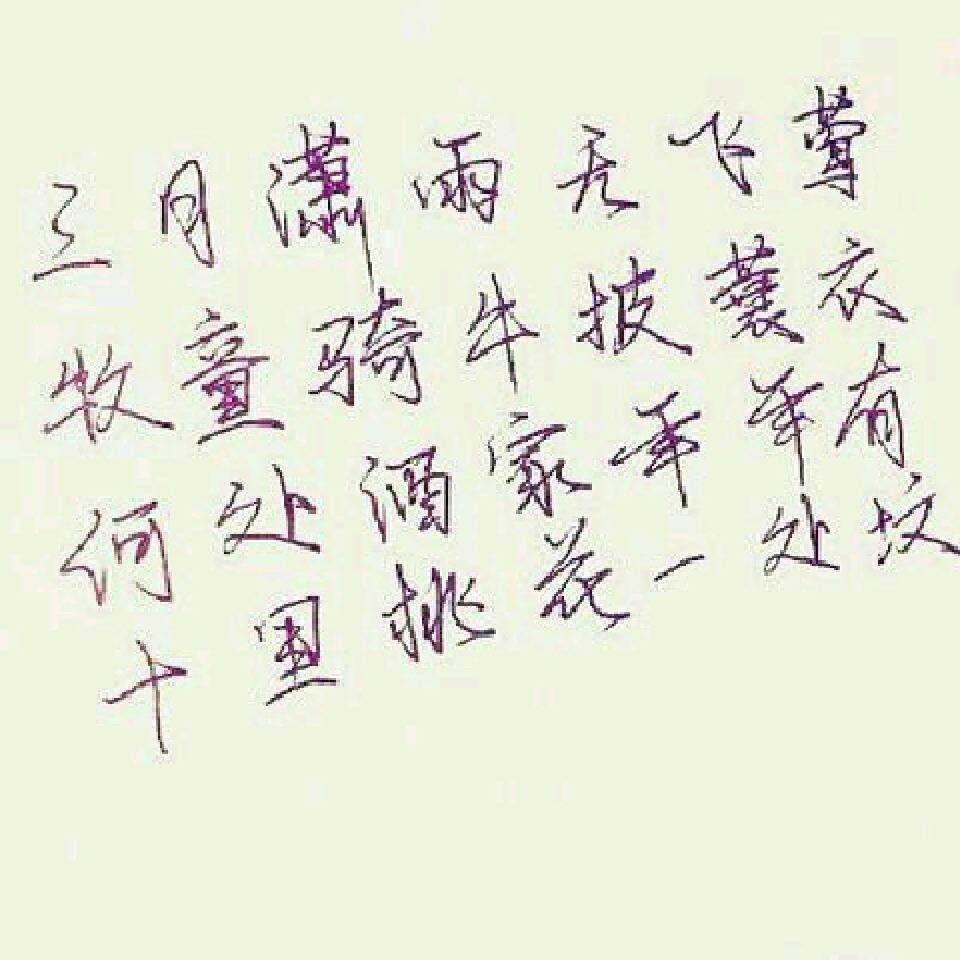 三月潇雨无飞莺
牧童骑牛披蓑衣
何处酒家年年有
十里桃花一处坟